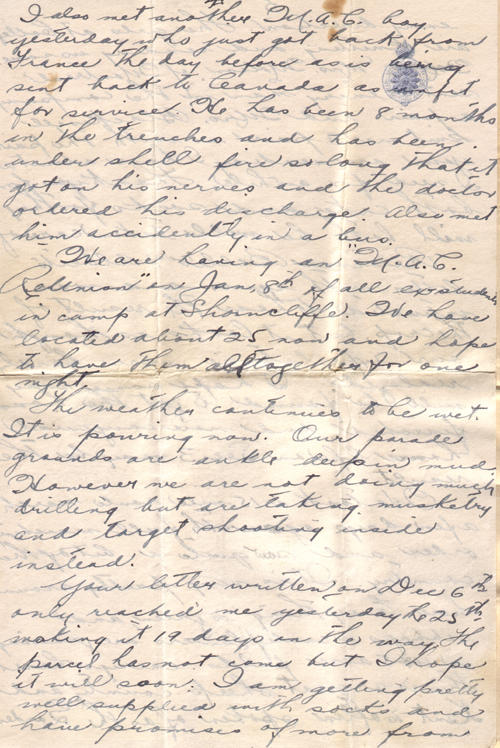 I also met another M.A.C. boy
yesterday who just got back from
France the day before as is being
sent back to Canada as unfit
for service. He has been 8 months
in the trenches and has been
under shell fire so long that it
got on his nerves and the doctor
ordered his discharge. Also met
him accidently in a bus.
We are having an "M.A.C.
Reunion" on Jan. 8th of all exstudents
in camp at Shorncliffe. We have
located about 25 now and hope
to have them alltogether for one
night.
The weather continues to be wet.
It is pouring now. Our parade
grounds are ankle deep in mud.
However we are not doing much
drilling but are taking musketry
and target shooting inside
instead.
Your letter written on Dec 6th
only reached me yesterday the 25th,
making it 19 days on the way. The
parcel has not come but I hope
it will soon. I am getting pretty
well supplied with socks and
have promises of more from